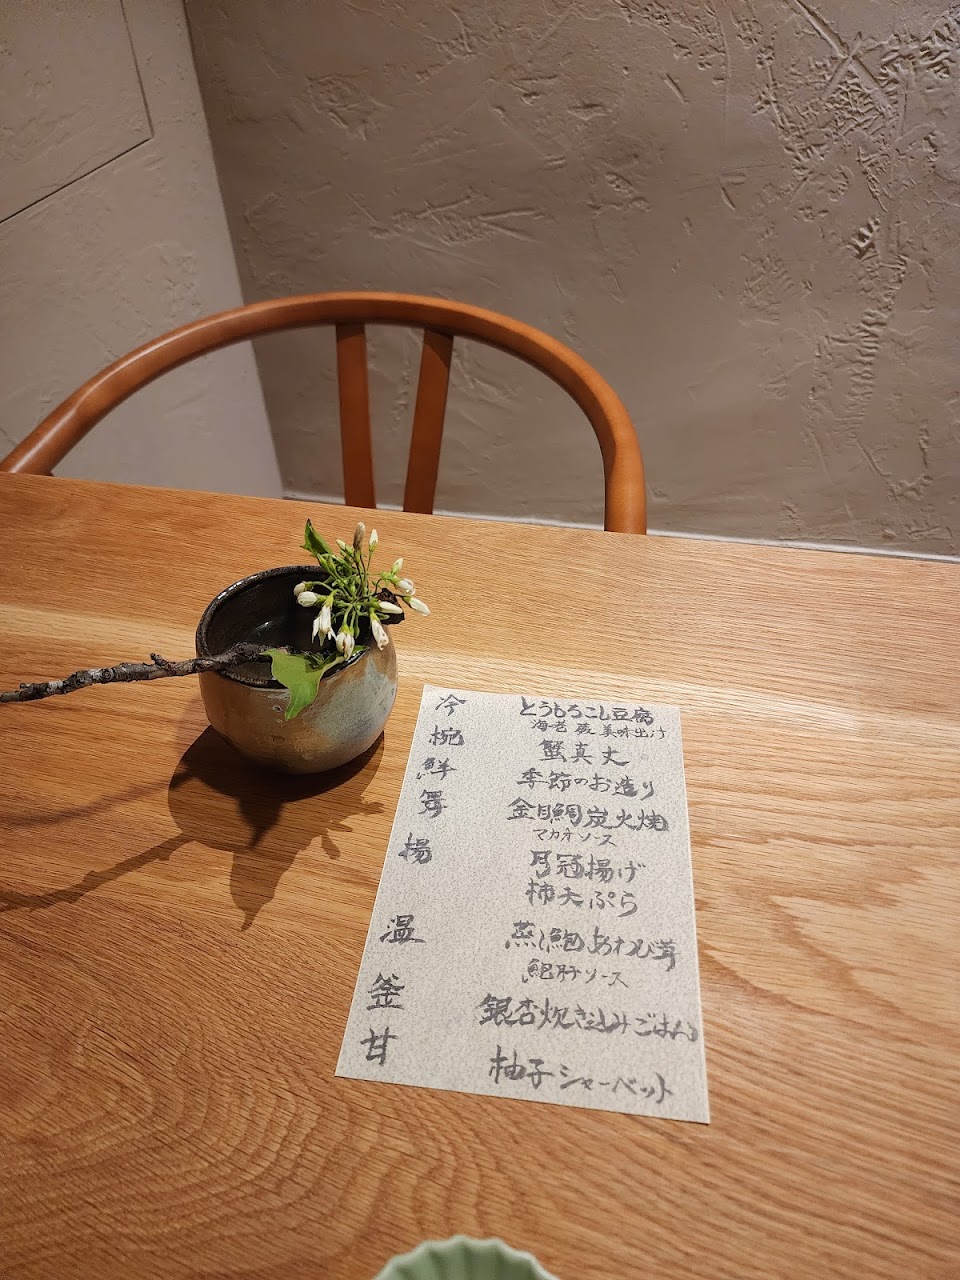 冷 とうもろこし豆腐
海老 蕨 美味出汁
椀 蟹真丈
鮮 季節のお造り
金目鯛炭火焼
マカオソース
揚 月冠揚げ
柿天ぷら
温 蒸し鮑 あわび茸
鮑肝ソース
釜 銀杏炊き込みごはん
甘 柚子シャーベット